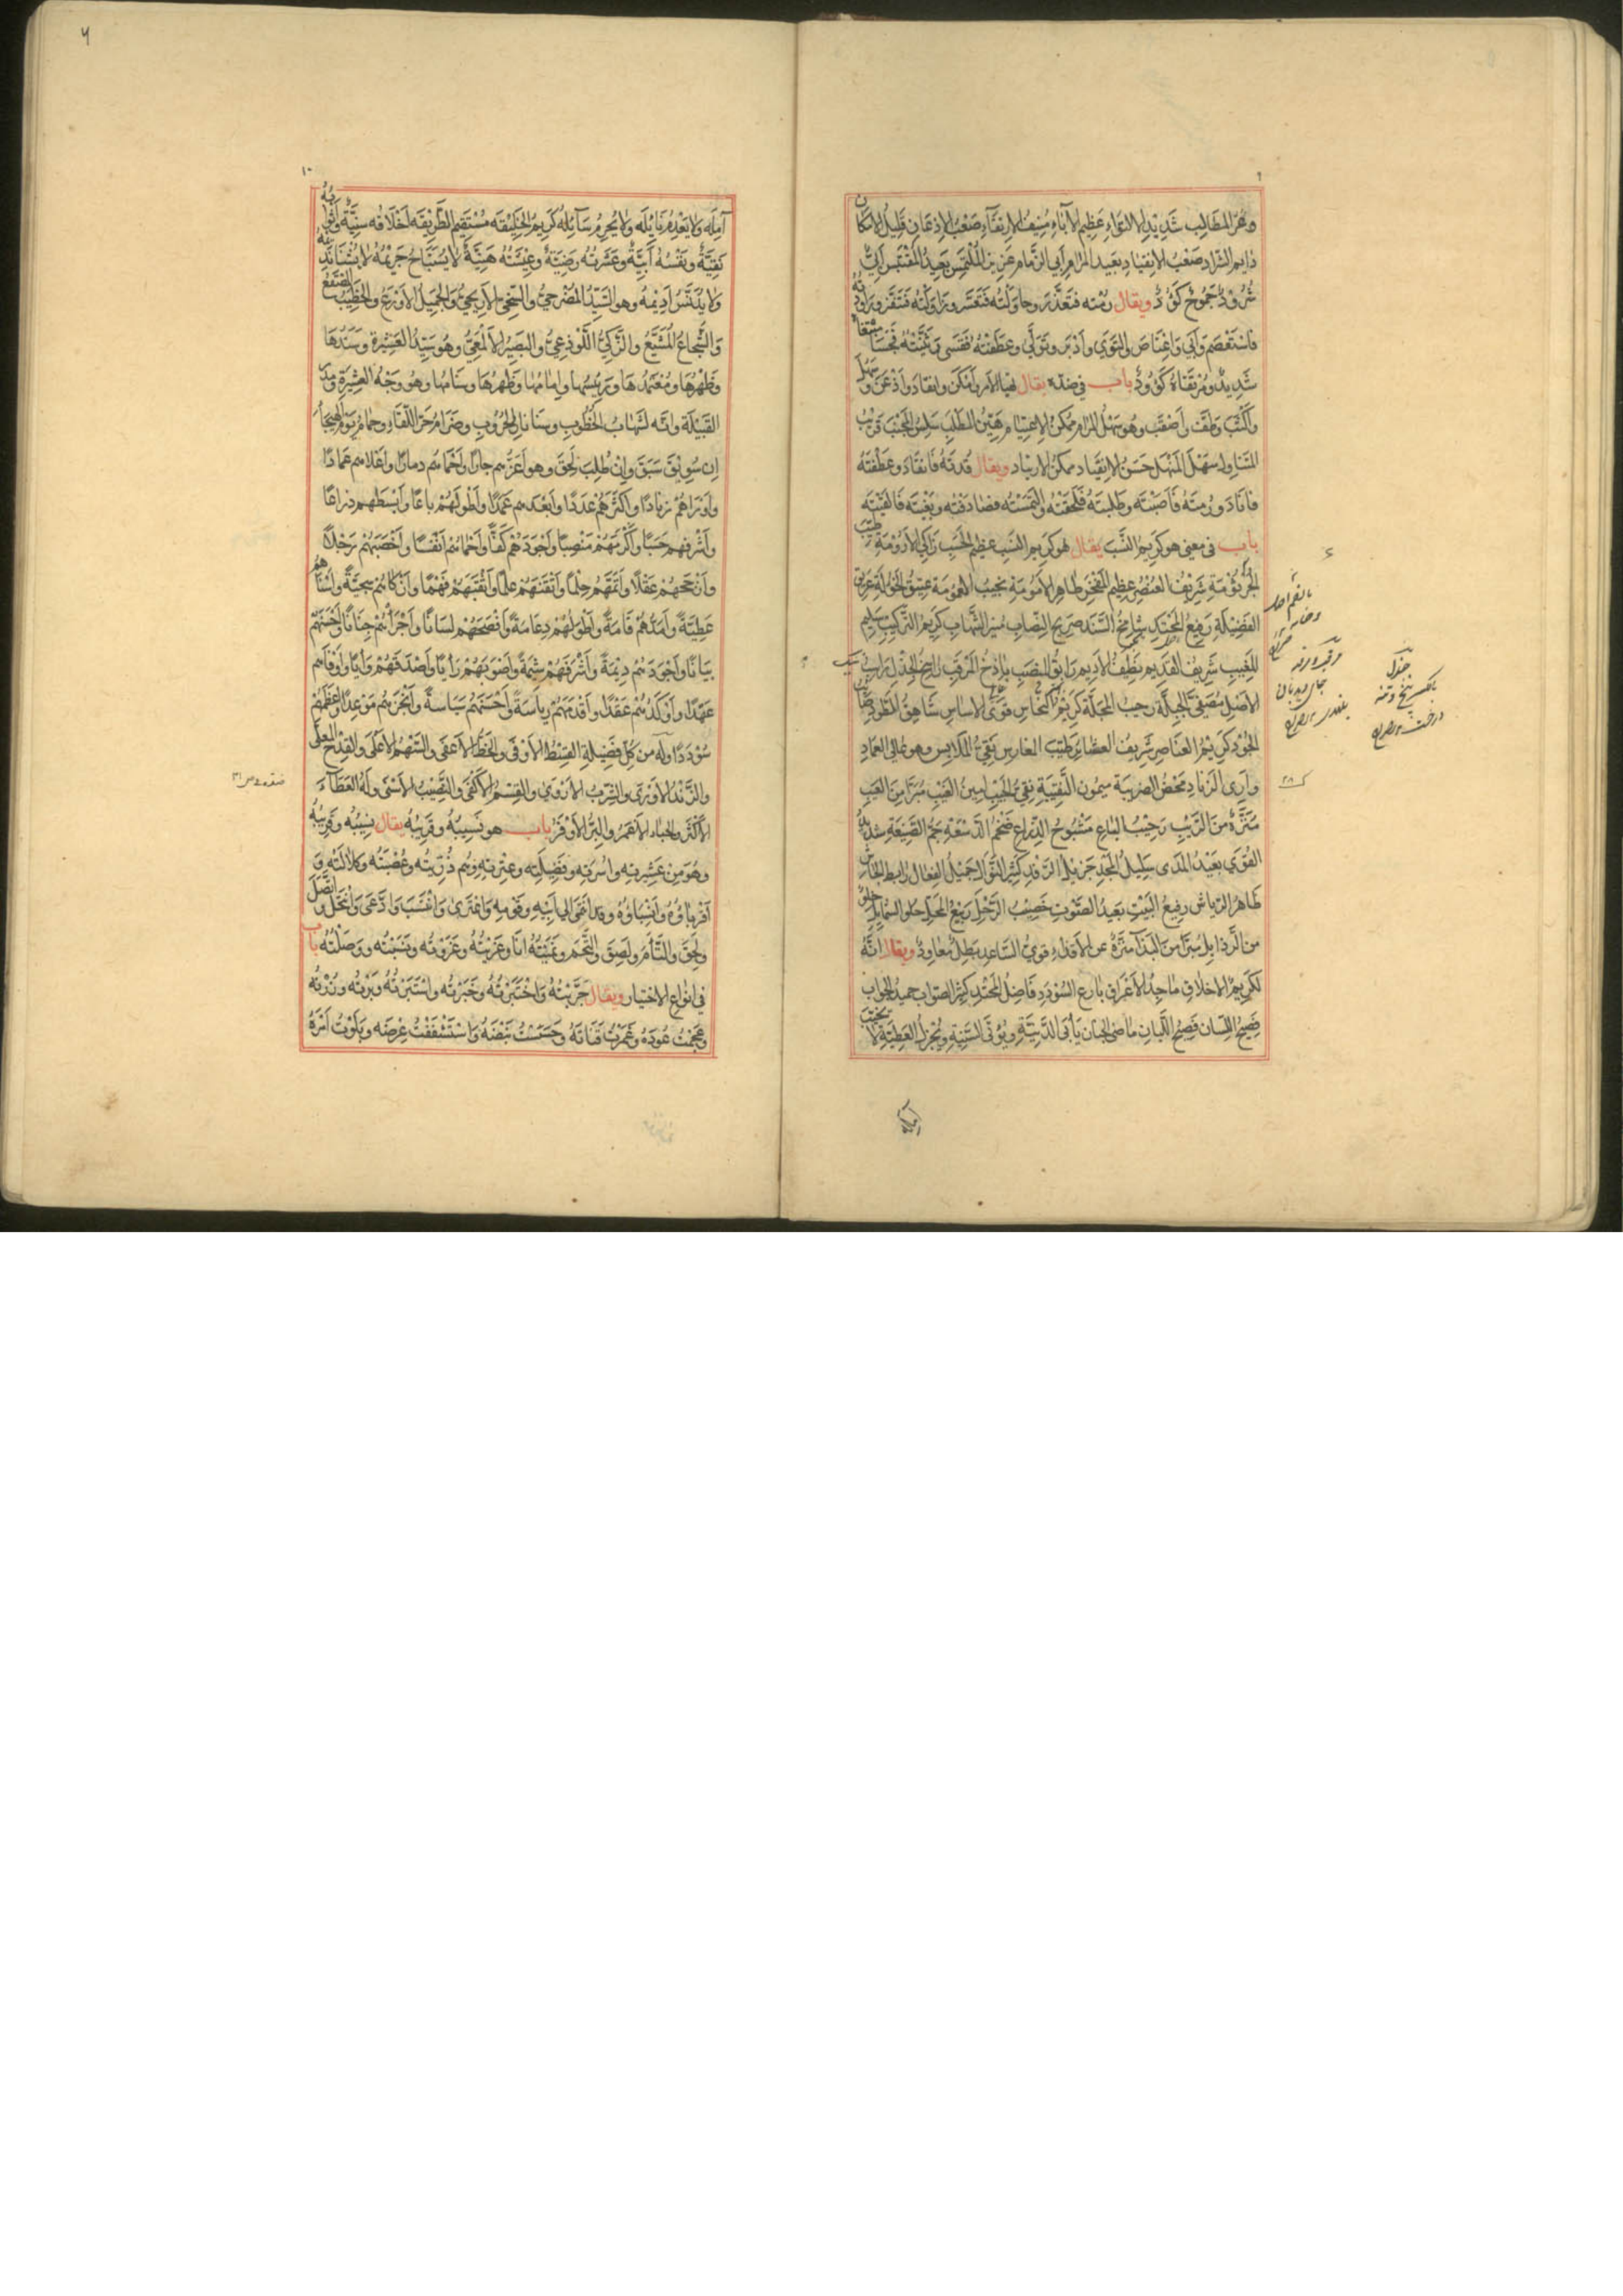 وعر المطالب شديد الالتواء عظيم الاباء منيف الارتقاء صعب الاذعان قليل الامكان
دايم الشراد صعب الانقياد بعيد المرام ابي الزمام عزيز الملتمس بعيد المقتبس ابي
شرود جموح كؤد ويقال رمته فتعذر وحاولته فتعسر وزاولته فتنفر وراودته
فاستعصم وابى واعتاص والتوى وادبر وتولى وعطفته فقسى وثنيته فجسا
شديد ومرتقاه كؤود باب في ضده يقال تهيا الامر وامكن وانقاد واذعن وسهل
واكثب واصقب وهو سهل المرام ممكن الاعتيام هين المطلب سلس المجنب قريب
المتناول سهل المنهل حسن الانقياد ممكن الارتياد ويقال قدته فانقاد وعطفته
فاناد ورمته فاصبته وطلبته فلحقته والتمسته فصادفته وبغيته فالفيته
باب في معنى هو كريم النسب يقال هو كريم النسب عظيم الحسب زاكي الارومة طيب
الجرثومة شريف العنصر عظيم المفخر طاهر الامومة نجيب العمومة عتيق الخؤلة عريق
الفضيلة رفيع المحتد شامخ السند صريح النصاب منير الشهاب كريم التركيب سليم
المغيب شريف القديم نظيف الاديم رايق المنصب باذخ المرقب راسخ الجذل راسب
الاصل مصفى الجبلة رحب المجلة كريم النحاس قوي الاساس شاهق الطود
الجود كريم العناصر شريف العصاير طيب المغارس نقي الملابس وهو عالي العماد
واري الزناد محض الضريبة ميمون النقيبة نقي الجيب امين الغيب مبرا من العيب
منزه من الريب رحيب الباع مشبوح الذراع ضخم الدسعة جم الصنيعة شديد
القوى بعيد المدى سليل المجد جزيل الرفد كثير النوال جميل الفعال رابط الجاش
طاهر الرياش رفيع البيت بعيد الصوت خصيب الرحل ربيع المحل حلو الشمايل خلو
من الرذايل مبرا من البذا منزه عن الاقذاء قوي الساعد بطل معاود ويقال انه
لكريم الاخلاق ماجد الاعراق بارع السودد فاضل المحتد كثير الصواب حميد الجواب
فصيح اللسان فصيح اللبان ماضي الجنان يابى الدنية ويؤتى السنية ويجزل العطية لا يخيب
بالفتح
جذل
بالكسر بيخ وتنه
درخت
جاى ديدبان
٩
١٠
آمله ولا يعدم نايله ولا يحرم سايله كريم الخليقه مستقيم الطريقه اخلاقه سنية واثوابه
نقية ونفسه ابية وعشرته رضية وعيشته هنية لا يستباح حريمه لا يشنا نديمه
ولا يدنس اديمه وهو السيد المضرحي والسخي الاريحي والجميل الاورع والخطيب المصقع
والشجاع المشيع والزكي اللوذعي والبصير الالمعي وهو سيد العشيرة وسندها
وظهرها ومعتمدها ورئيسها وامامها وظهرها وسنامها وهو وجه العشيرة ومدره
القبيلة وانه لشهاب الخطوب وسنان الحروب وضرام حر اللقاء وحمام يوم الهيجاء
ان سوبق سبق وان طلب لحق وهو اعزهم جارا واحماهم دمارا واعلاهم عمادا
واوراهم زنادا واكثرهم عددا وابعدهم عمدا واطولهم باعا وابسطهم ذراعا
واشرفهم حسبا واكرمهم منصبا واجودهم كفا واحماهم انفسا واخصبهم رحلا
وارجحهم عقلا واتمهم حلما واثقنهم علما واثقبهم فهما وازكاهم سجية واسناهم
عطية وامدهم قامة واطولهم دعامة وافصحهم لسانا واجرأهم جنانا واحسنهم
بيانا واجودهم ديمة واشرفهم شيمة واصوبهم رايا واصدقهم وايا واوفاهم
عهدا واوكدهم عقدا واقدمهم رياسة واحسنهم سياسة وانجزهم موعدا واعظمهم
سوددا وله من كل فضيلة القسط الاوفى والحظ الاعفى والسهم الاعلى والقدح المعلى
والزند الاورى والشرب الاروى والقسم الاكفى والنصيب الاسنى وله العطاء
الاكثر والحباء الاغمر والبر الاوفر باب هو نسيبه وقريبه يقال نسيبه وقريبه
وهو من عشيرته واسرته وفصيلته وعترته وهم ذريته وعصبته وكلالته و
اقرباؤه وانسباؤه وقد انتمى الى ابيه وقومه واعتزى وانتسب وادعى وانتحل واتصل
ولحق والتام ولصق والتحم ونميته انا وعزيته وعزوته ونسبته ووصلته باب
في انواع الاختيار ويقال جربته واختبرته وخبرته واستبرته وبرته وزرته
وعجمت عوده وغمرت قناته وحسست نبضه واستشففت عرضه وبلوت امره